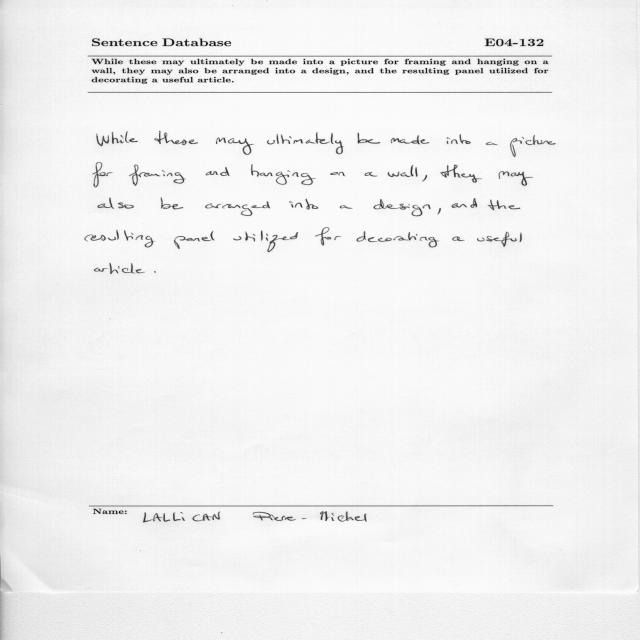 Sentence Database E04-132
While these may ultimately be made into a picture for framing and hanging on a
wall, they may also be arranged into a design, and the resulting panel utilized for
decorating a useful article.
While these may ultimately be made into a picture
for framing and hanging on a wall, they may
also be arranged into a design, and the
resulting panel utilized for decorating a useful
article.
Name: LALLiCAN Pierre-Michel